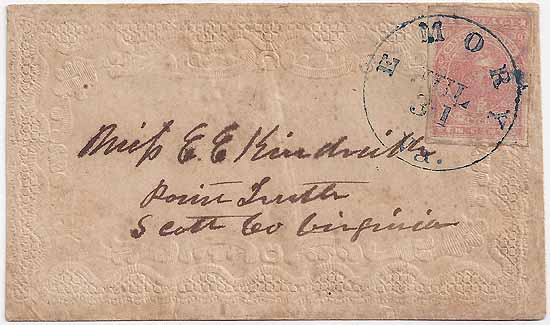 EMORY
JUL
31
Va.
Miss E. E.
Point Truth
Scott Co Virginia